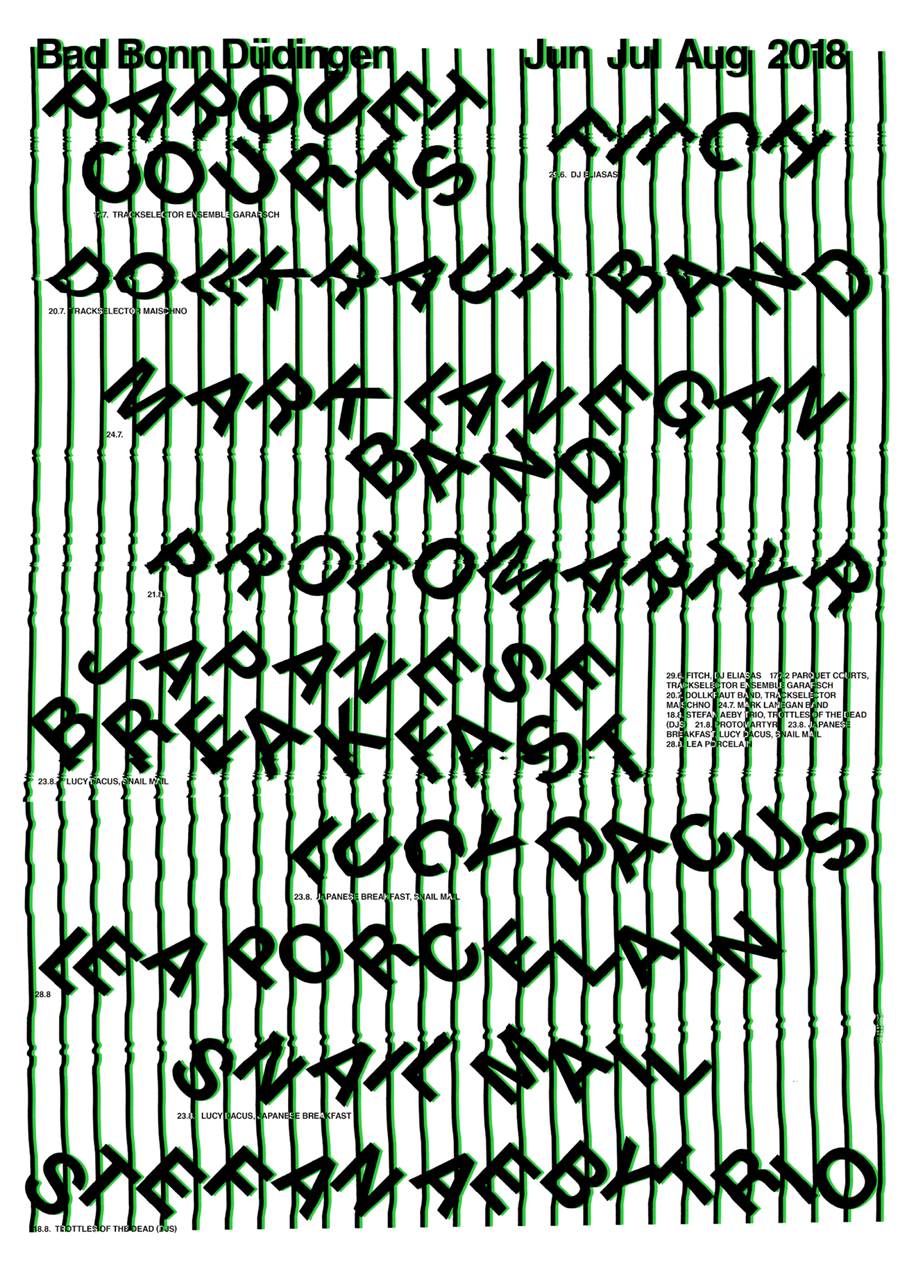 Bad Bonn Düdingen Jun Jul Aug 2018
PARQUET
COURTS
17.7. TRACKSELECTOR ENSEMBLE GARAESCH
FITCH
29.6. DJ ELIASAS
DOLLKRAUT BAND
20.7. TRACKSELECTOR MAISCHNO
MARK LANEGAN
BAND
24.7.
PROTOMARTYR
21.8.
JAPANESE
BREAKFAST
23.8. LUCY DACUS, SNAIL MAIL
29.6. FITCH, DJ ELIASAS 17.7.2 PARQUET COURTS,
TRACKSELECTOR ENSEMBLE GARAESCH
20.7. DOLLKRAUT BAND, TRACKSELECTOR
MAISCHNO 24.7. MARK LANEGAN BAND
18.8. STEFAN AEBY TRIO, TROTTLES OF THE DEAD
(DJS) 21.8. PROTOMARTYR 23.8. JAPANESE
BREAKFAST, LUCY DACUS, SNAIL MAIL
28.8. LEA PORCELAIN
LUCY DACUS
23.8. JAPANESE BREAKFAST, SNAIL MAIL
LEA PORCELAIN
28.8
SNAIL MAIL
23.8. LUCY DACUS, JAPANESE BREAKFAST
STEFAN AEBY TRIO
18.8. TROTTLES OF THE DEAD (DJS)